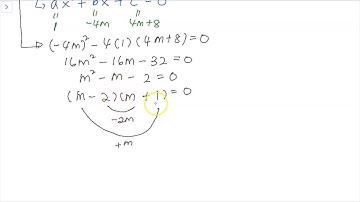 ax² + bx + c = 0
" " "
1 -4m 4m+8
(-4m)² - 4(1)(4m+8) = 0
16m² - 16m - 32 = 0
m² - m - 2 = 0
(m - 2)(m + 1) = 0
-2m
+m